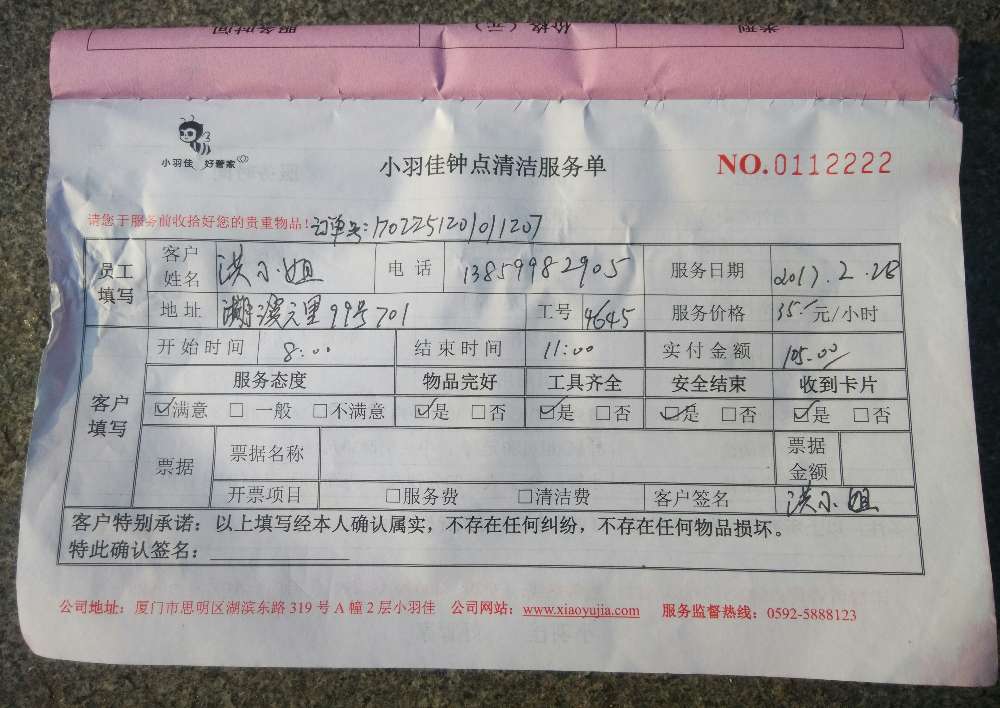 服务时间 价格（元） 类别
小羽佳 好管家
小羽佳钟点清洁服务单
NO.0112222
请您于服务前收拾好您的贵重物品！订单号:1702251201011207
员工填写 客户姓名 洪小姐 电话 13859982905 服务日期 2017.2.28
地址 湖滨六里99号701 工号 4645 服务价格 35.元/小时
客户填写 开始时间 8:00 结束时间 11:00 实付金额 105.00
服务态度 物品完好 工具齐全 安全结束 收到卡片
☑满意 □一般 □不满意 ☑是 □否 ☑是 □否 ☑是 □否 ☑是 □否
票据 票据名称 票据金额
开票项目 □服务费 □清洁费 客户签名 洪小姐
客户特别承诺：以上填写经本人确认属实，不存在任何纠纷，不存在任何物品损坏。
特此确认签名：
公司地址：厦门市思明区湖滨东路 319 号 A 幢 2 层小羽佳 公司网站：www.xiaoyujia.com 服务监督热线：0592-5888123